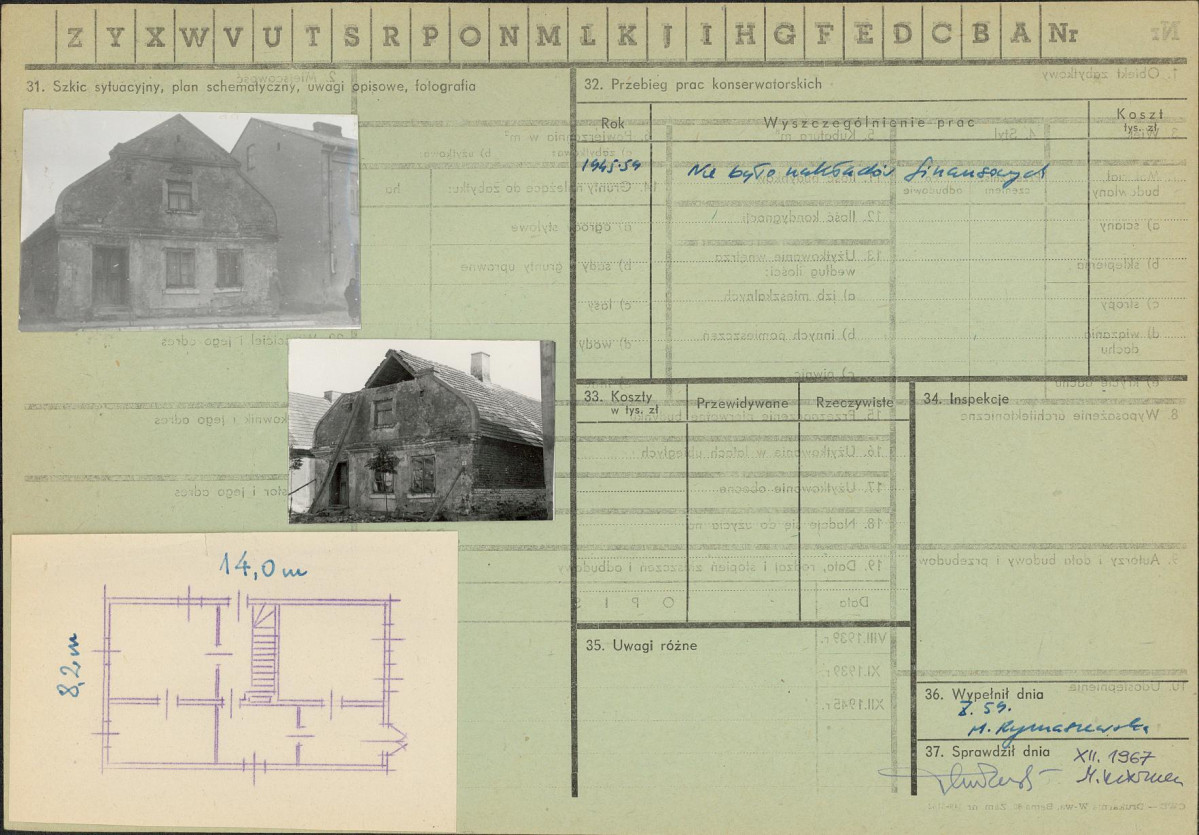 Z Y X W V U T S R P O N M Ł K J I H G F E D C B A Nr
31. Szkic sytuacyjny, plan schematyczny, uwagi opisowe, fotografia
32. Przebieg prac konserwatorskich
Rok
Wyszczególnienie prac
Koszt
tys. zł
1945-59
Nie było nakładów finansowych
33. Koszty
w tys. zł
Przewidywane
Rzeczywiste
34. Inspekcje
14,0 m
8,2 m
35. Uwagi różne
36. Wypełnił dnia
X. 59.
H. Rymaszewska
37. Sprawdził dnia
XII. 1967